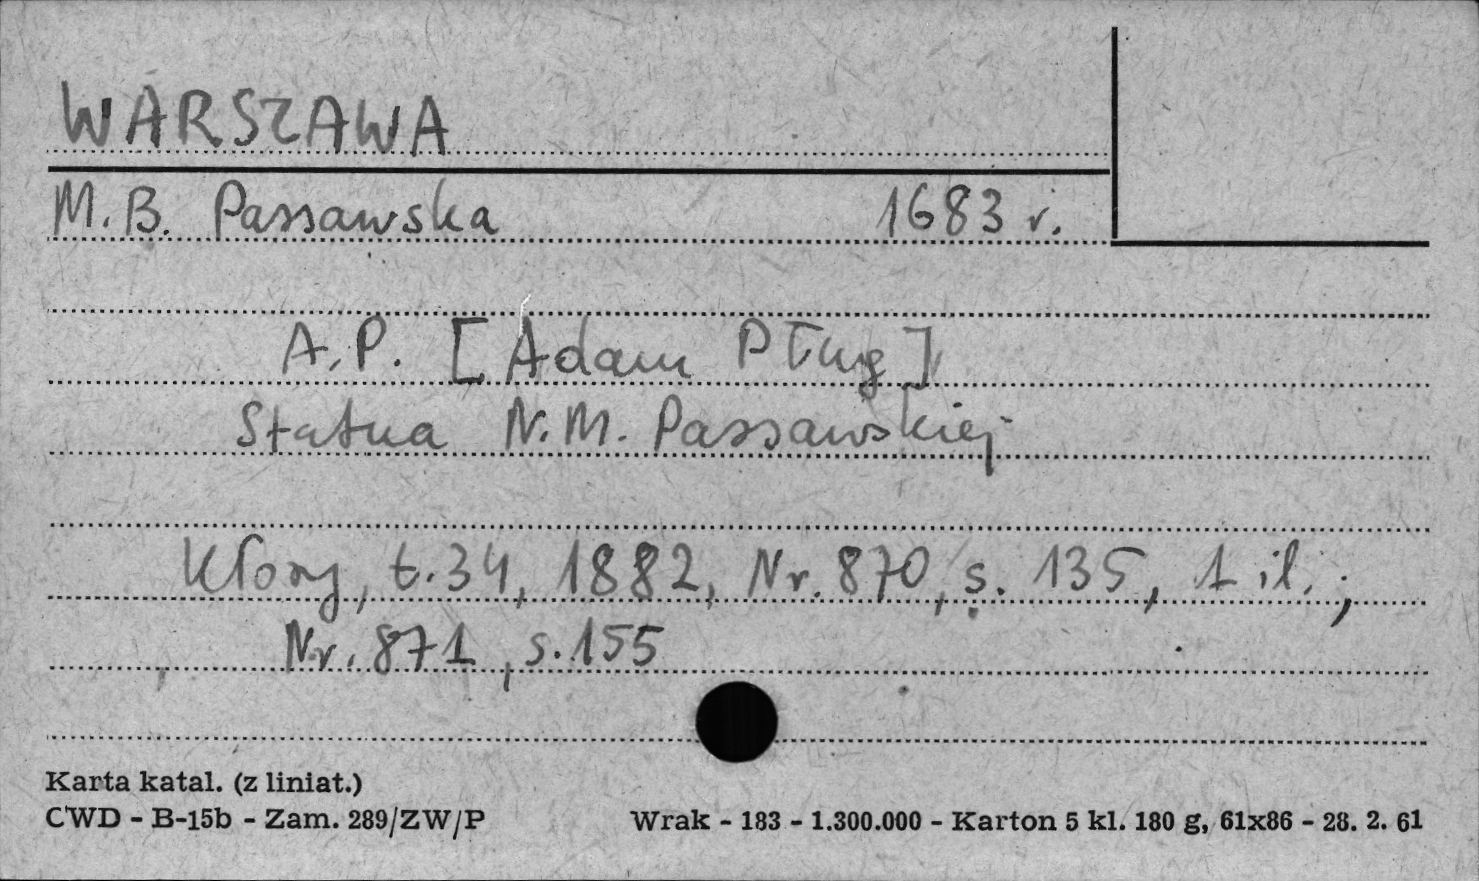 WARSZAWA
M.B. Passawska 1683 r.
A.P. [Adam Pług]
Statua N.M. Passawskiej
Kłosy, t.34, 1882, Nr. 870, s. 135, 1 il.;
Nr. 871, s.155
Karta katal. (z liniat.)
CWD - B-15b - Zam. 289/ZW/P Wrak - 183 - 1.300.000 - Karton 5 kl. 180 g, 61x86 - 28. 2. 61